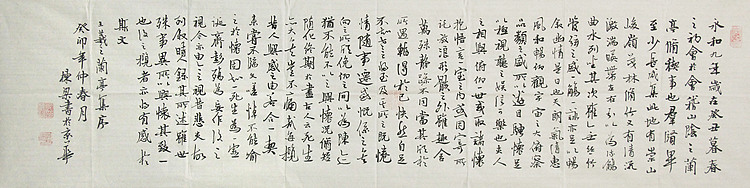 永和九年歲在癸丑暮春
之初會于會稽山陰之蘭
亭脩稧事也群賢畢
至少長咸集此地有崇山
峻嶺茂林脩竹又有清流
激湍暎帶左右引以為流觴
曲水列坐其次雖無絲竹
管弦之盛一觴一詠亦足以暢
敘幽情是日也天朗氣清惠
風和暢仰觀宇宙之大俯察
品類盛所以遊目騁懷足
以極視聽之娛信可樂也夫人
之相與俯仰一世或取諸懷
抱悟言一室之內或因寄所
託放浪形骸之外雖趣舍
萬殊靜躁不同當其欣於
所遇暫得於己快然自足
不知老之將至及其所之既惓
情隨事遷感慨係之矣
向之所欣俛仰之間以為陳迹
猶不能不以之興懷況脩短
隨化終期於盡古人云死生
亦大矣豈不痛哉每攬
昔人興感之由若合一契
未嘗不臨文嗟悼不能喻
之於懷固知一死生為虛
誕齊彭殤為妄作後之
視今亦由今之視昔悲夫故
列敘時人錄其所述雖世
殊事異所以興懷其致一
也後之攬者亦將有感於
斯文
王羲之蘭亭集序
癸卯年仲春月
書於京華